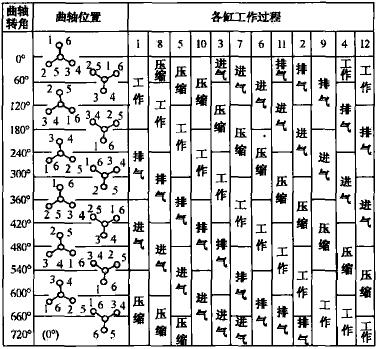 曲轴
转角
曲轴位置
各缸工作过程
1 8 5 10 3 7 6 11 2 9 4 12
0°
60°
120°
180°
240°
300°
360°
420°
480°
540°
600°
660°
720°
1 6
2 5 3 4
2 5 1 6
3 4
2 5
3 4 1 6
3 4 1 6
2 5
3 4
1 6 2 5
1 6 3 4
2 5
1 6
2 5 3 4
2 5 1 6
3 4
2 5
3 4 1 6
3 4 1 6
2 5
3 4
1 6 2 5
1 6 3 4
6 5
(0°)
工作 排气 进气 压缩
压缩 工作 排气 进气 压缩
压缩 工作 排气 进气 压缩
压缩 工作 排气 进气
进气 压缩 工作 排气 进气
进气 压缩 工作 排气 进气
进气 压缩 工作 排气
排气 进气 压缩 工作 排气
排气 进气 压缩 工作 排气
排气 进气 压缩 工作
工作 排气 进气 压缩 工作
工作 排气 进气 压缩 工作